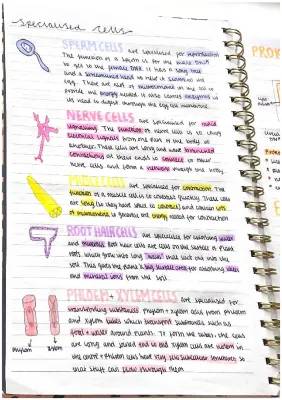 Specialised Cells
SPERM CELLS are specialised for reproduction
The function of a sperm is for the male DNA
to get to the female DNA. It has a long tail
and a streamlined head to help it swim to the
egg. There are lots of mitochondria in the cell to
provide the energy needed. It also carries enzymes in
its head to digest through the egg cell membrane.
NERVE CELLS are specialised for rapid
signalling. The function of nerve cells is to carry
electrical signals from one part of the body to
another. These cells are long and have branched
connections at their ends to connect to other
nerve cells and form a network through the body.
MUSCLE CELLS are specialised for contraction. The
function of a muscle cell is to contract quickly. These cells
are long (so they have space to contract) and contain lots
of mitochondria to generate the energy needed for contraction
ROOT HAIR CELLS are specialised for absorbing water
and minerals. Root hair cells are cells on the surface of plant
roots, which grow into long "hairs" that stick out into the
soil. This gives the plant a big surface area for absorbing water
and mineral ions from the soil.
PHLOEM + XYLEM CELLS are specialised for
transporting substances. Phloem + xylem cells form phloem
and xylem tubes which transport substances such as
food + water around plants. To form the tubes, the cells
are long and joined end to end. Xylem cells are hollow in
the centre + phloem cells have very few subcellular structures so
that stuff can flow through them
Phloem
Xylem